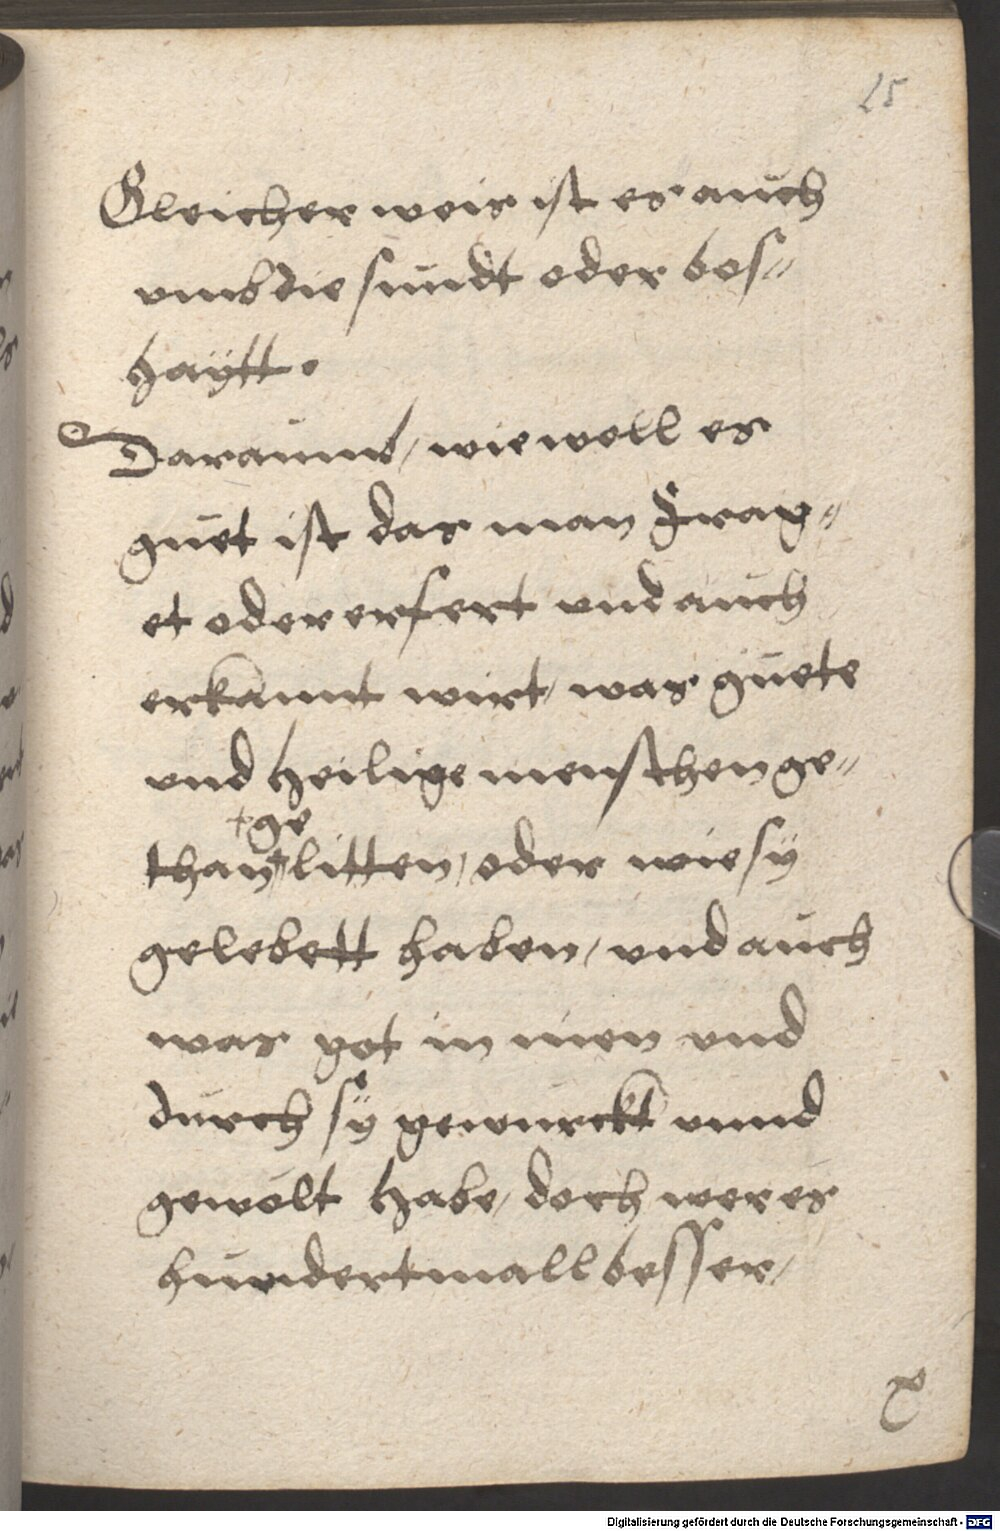 25
Gleicher weis ist es auch
vmb die sundt oder bos=
haÿtt.
Daraumb / wiewoll es
guet ist das man Frag=
et oder erfert vnd auch
erkannt wirt, was guete
vnd heilige menschen ge=
+ge
than + litten, oder wie sÿ
gelebett haben, vnd auch
was got in inen vnd
durch sÿ gewurckt vnnd
gewölt habe, doch wer es
hundertmall besser,
Digitalisierung gefördert durch die Deutsche Forschungsgemeinschaft - DFG